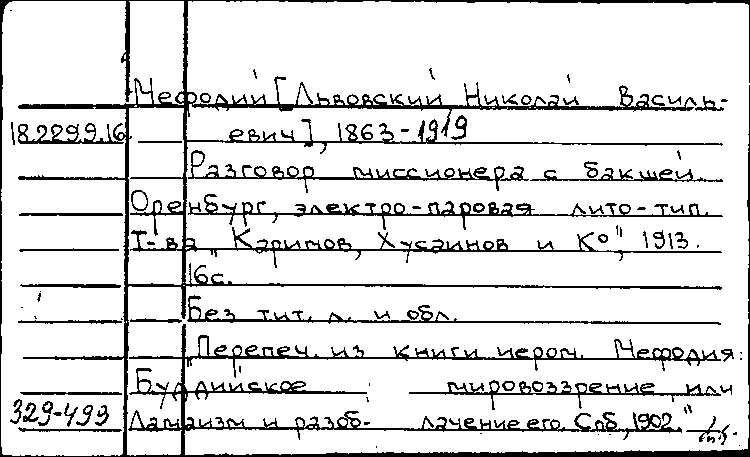 Мефодий [Львовский, Николай Василь-
18.229.9.16 евич], 1863-1919
Разговор миссионера с бакшей.
Оренбург, электро-паровая лито-тип.
Т-ва „Каримов, Хусаинов и К°", 1913.
16с.
Без тит. л. и обл.
„Перепеч. из книги иером. Мефодия:
Буддийское мировоззрение или
329-499 Ламаизм и разоб- лачение его. Спб, 1902."